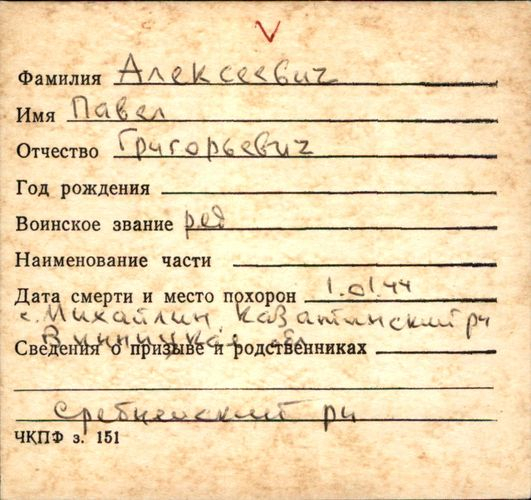 Фамилия Алексеевич
Имя Павел
Отчество Григорьевич
Год рождения
Воинское звание ряд
Наименование части
Дата смерти и место похорон 1.01.44
с. Михайлин, Казатинский рн
Винницкая обл
Сведения о призыве и родственниках
Сребнянский рн
ЧКПФ з. 151